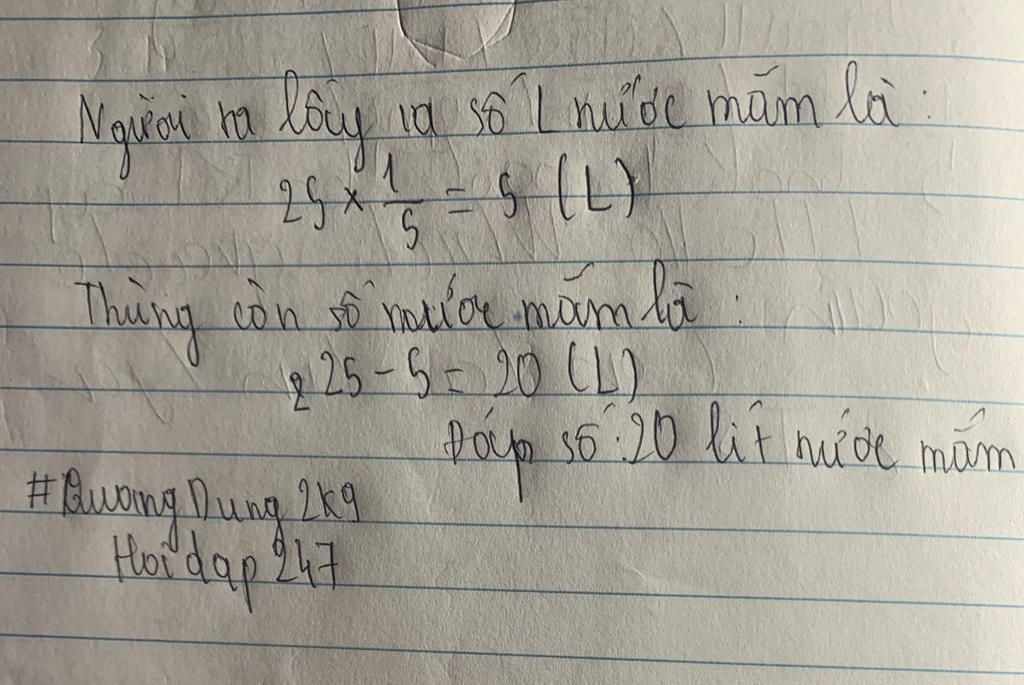 Người ra lấy ra số L nước mắm là:
25 × 1/5 = 5 (L)
Thùng còn số nước mắm là:
25 - 5 = 20 (L)
Đáp số: 20 lít nước mắm
#Quang Dung 2k9
Hoidap 247